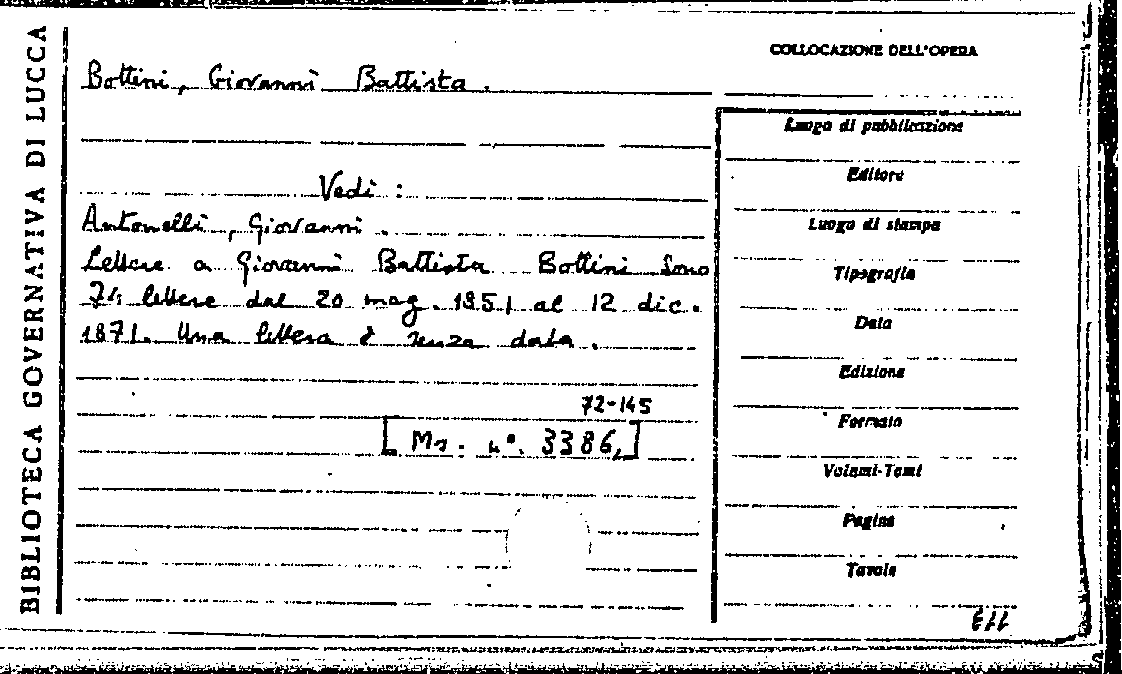 BIBLIOTECA GOVERNATIVA DI LUCCA
Bottini, Giovanni Battista.
Vedi :
Antonelli, Giovanni.
Lettere a Giovanni Battista Bottini Sono
74 lettere dal 20 mag. 1851 al 12 dic.
1871. Una lettera è senza data.
72-145
[Ms. nº. 3386,]
COLLOCAZIONE DELL'OPERA
Luogo di pubblicazione
Editore
Luogo di stampa
Tipografia
Data
Edizione
Formato
Volumi-Tomi
Pagine
Tavole